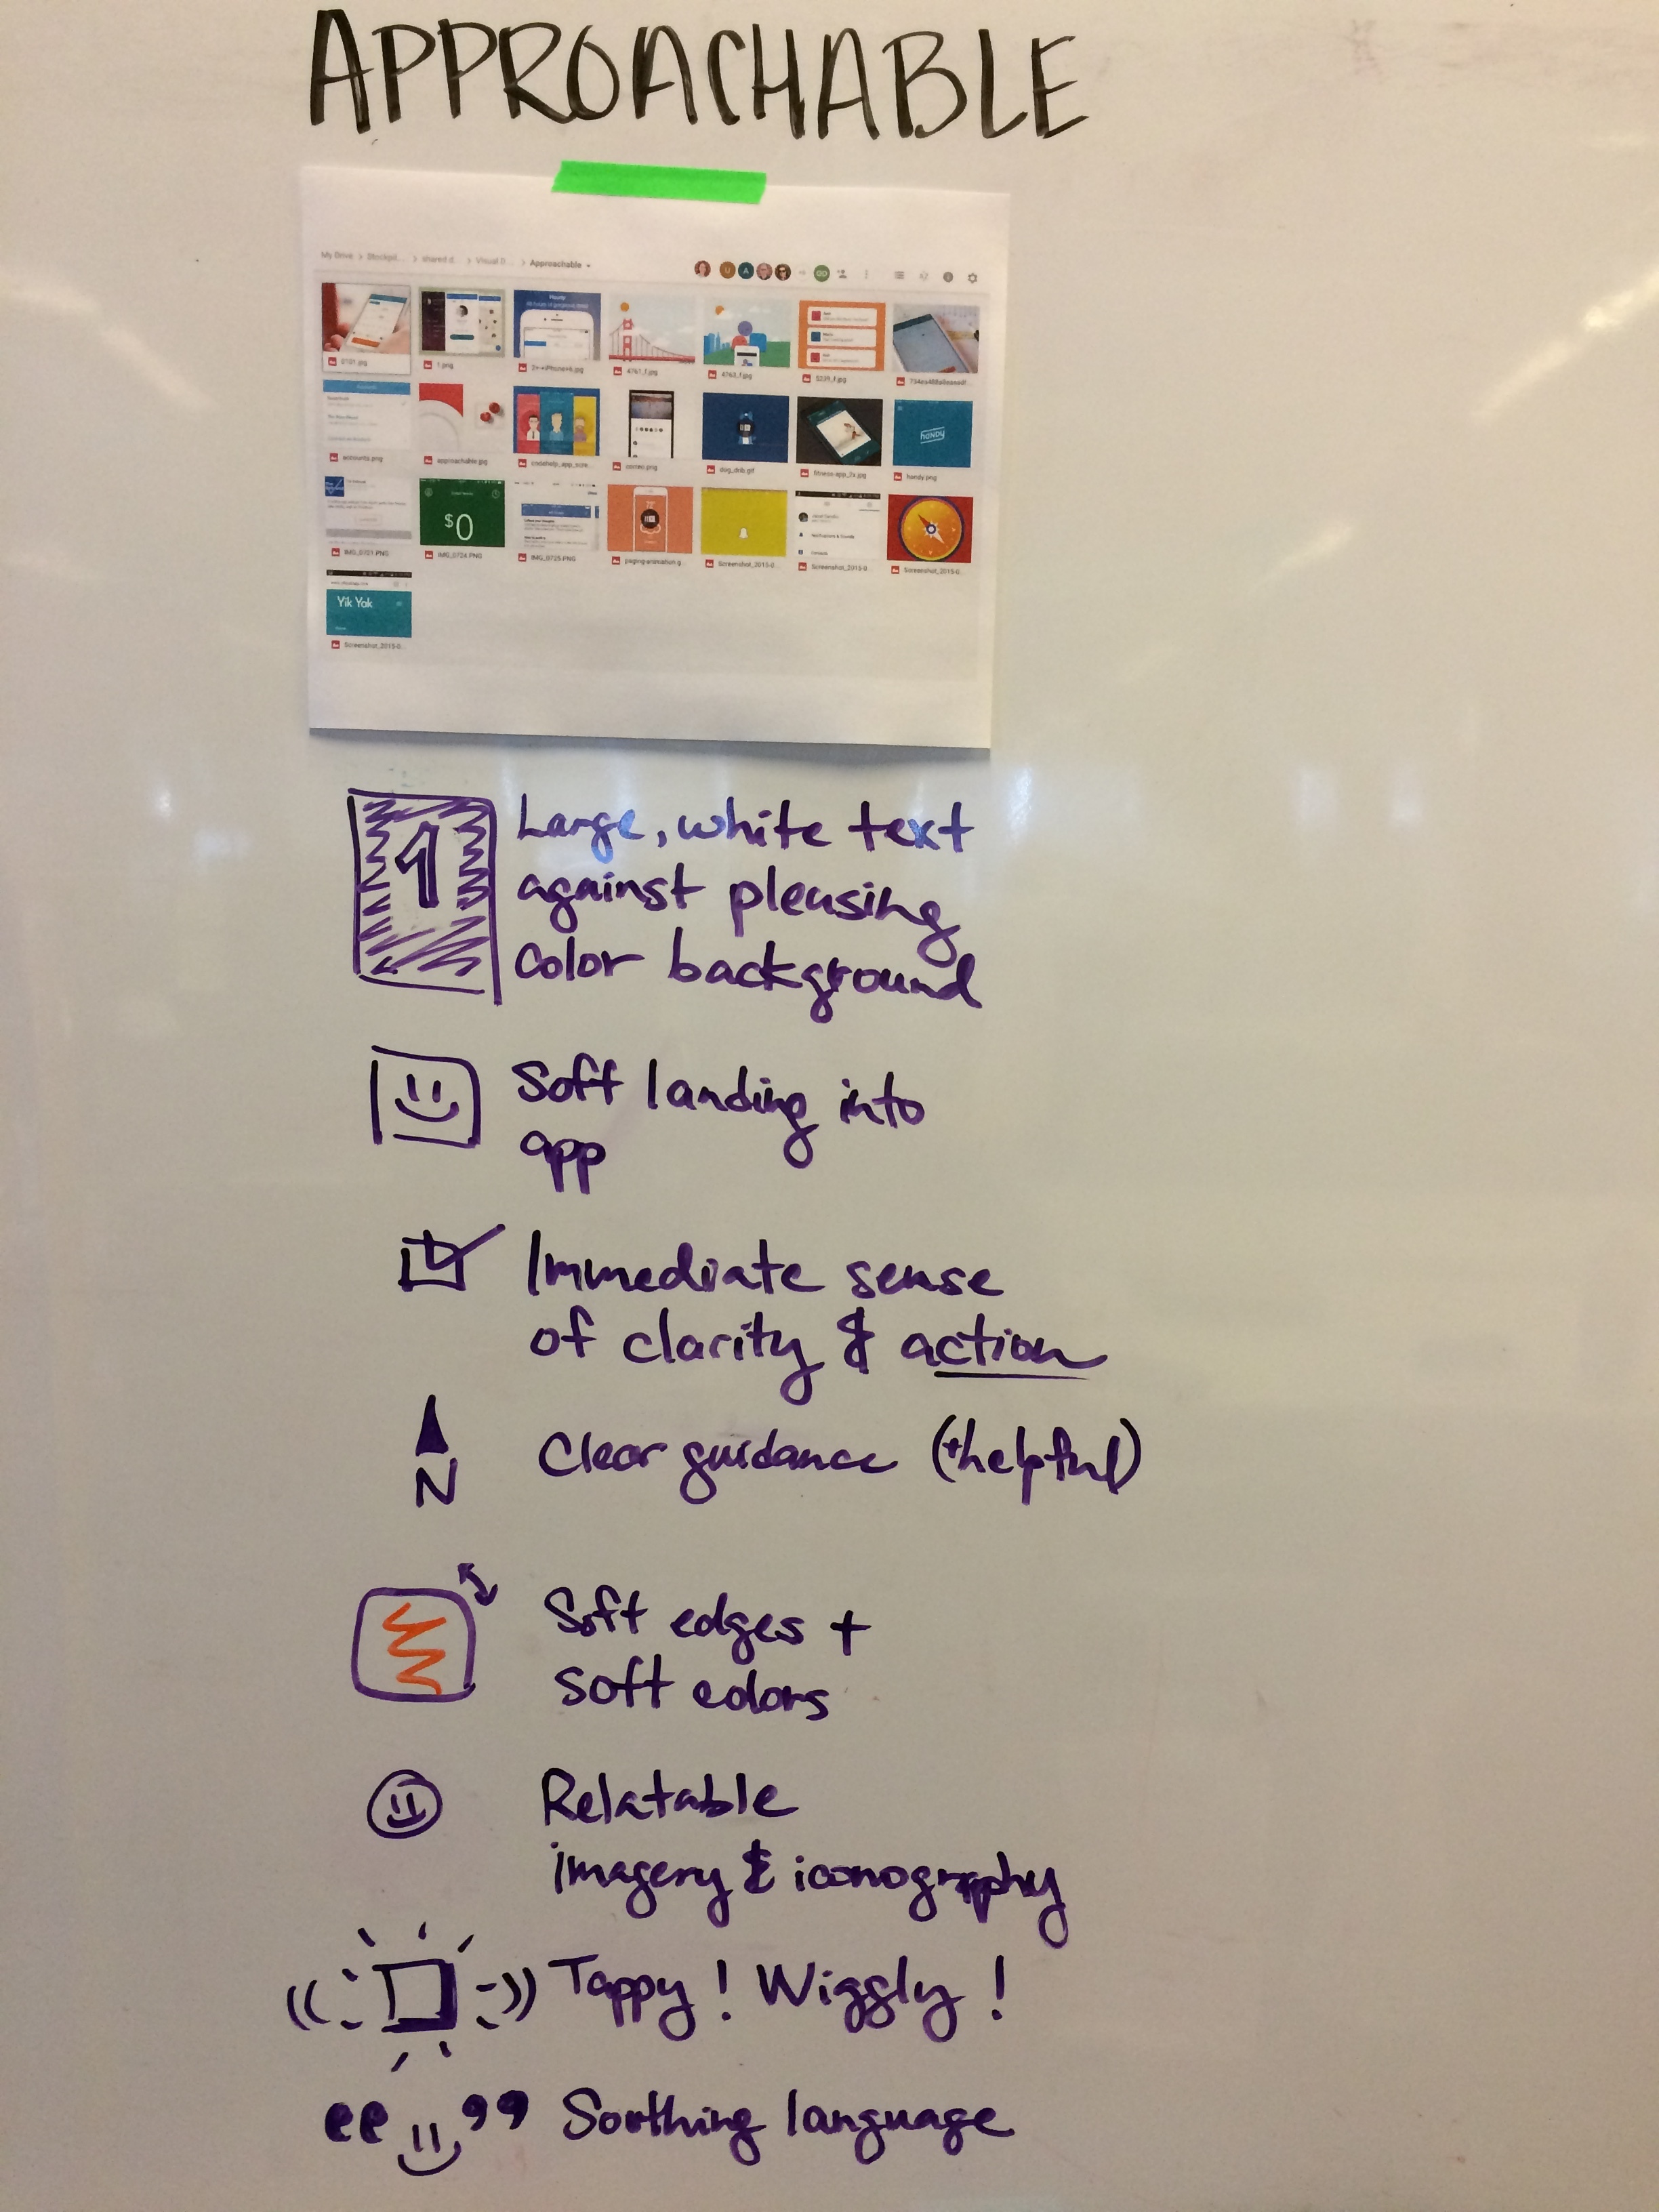 APPROACHABLE
My Drive > Stockpil... > shared d... > Visual D... > Approachable
0701.jpg
1.png
2x-+iPhone+6.jpg
4761_f.jpg
4763_f.jpg
5239_f.jpg
accounts.png
approachable.jpg
correo.png
dog_drib.gif
fitness-app_2x.jpg
handy
handy.png
$0
IMG_0701.PNG
IMG_0724.PNG
IMG_0725.PNG
paging-animation.g...
Screenshot_2015-0...
Screenshot_2015-0...
Screenshot_2015-0...
Yik Yak
Screenshot_2015-0...
1 Large, white text
against pleasing
color background
Soft landing into
app
Immediate sense
of clarity & action
Clear guidance (+helpful)
N
Soft edges +
soft colors
Relatable
imagery & iconography
Tappy! Wiggly!
Soothing language